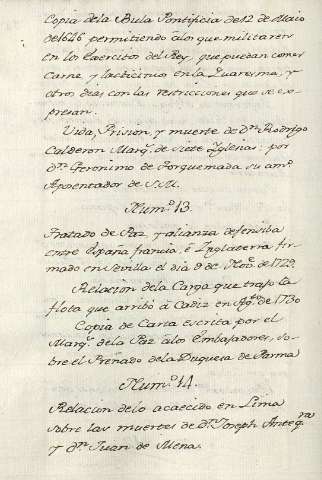 Copia de la Bula Pontificia de 12 de Maio
de 1646 permitiendo álos que militaren
en los Exercitos del Rey, que puedan comer
Carne y lacticinios en la Quaresma, y
otros dias con las restricciones que se ex-
presan.
Vida, Prision, y muerte de Dn. Rodrigo
Calderon Marq. de Siete Yglesias: por
dn. Geronimo de Torquemada su amo.
Aposentador de S.M.
Num.o 13.
Tratado de Paz y alianza defensiba
entre España francia, é Inglaterra fir-
mado en Sevilla el dia 9 de Nove. de 1729.
Relacion de la Carga que trajo la
flota que arribó á Cadiz en Agto. de 1730
Copia de Carta escrita por el
Marq. de la Paz álos Embajadores, so-
bre el Preñado de la Duquesa de Parma
Num.o 14.
Relacion delo acaecido en Lima
sobre las muertes de Dn. Joseph Anteqra
y dn. Juan de Mena.